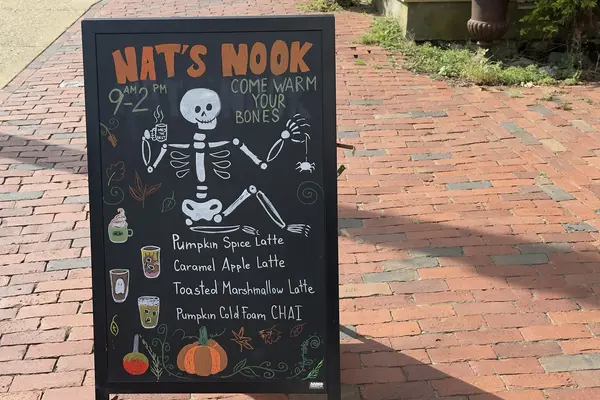 NAT'S NOOK
9AM-2PM
COME WARM
YOUR
BONES
Pumpkin Spice Latte
Caramel Apple Latte
Toasted Marshmallow Latte
Pumpkin Cold Foam CHAI